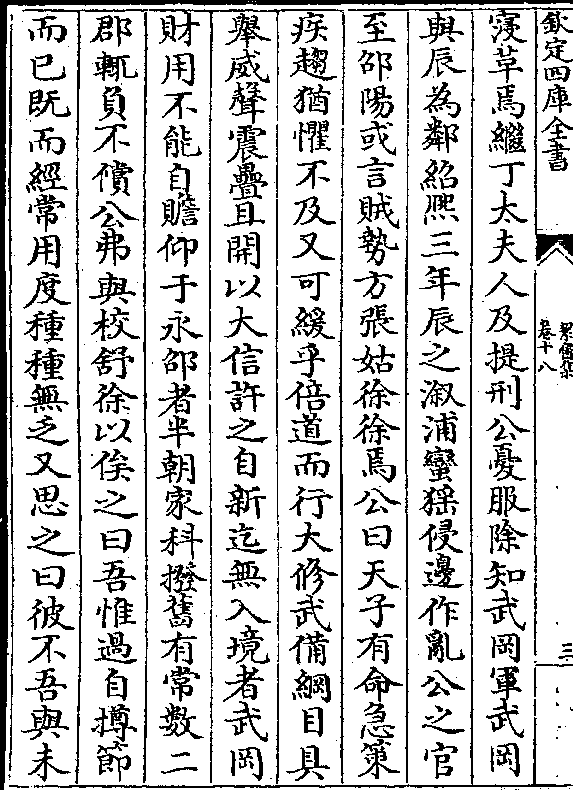 欽定四庫全書
寖草焉繼丁太夫人及提刑公憂服除知武岡軍武岡
與辰為鄰紹熙三年辰之溆浦蠻猺侵邊作亂公之官
至邵陽或言賊勢方張姑徐徐焉公曰天子有命急策
疾趨猶懼不及又可緩乎倍道而行大修武備綱目具
舉威聲震疊且開以大信許之自新迄無入境者武岡
財用不能自贍仰于永邵者半朝家科撥舊有常數二
郡輒負不償公弗與校舒徐以俟之曰吾惟過自撙節
而已既而經常用度種種無乏又思之曰彼不吾與未
絜齋集
卷十八
三